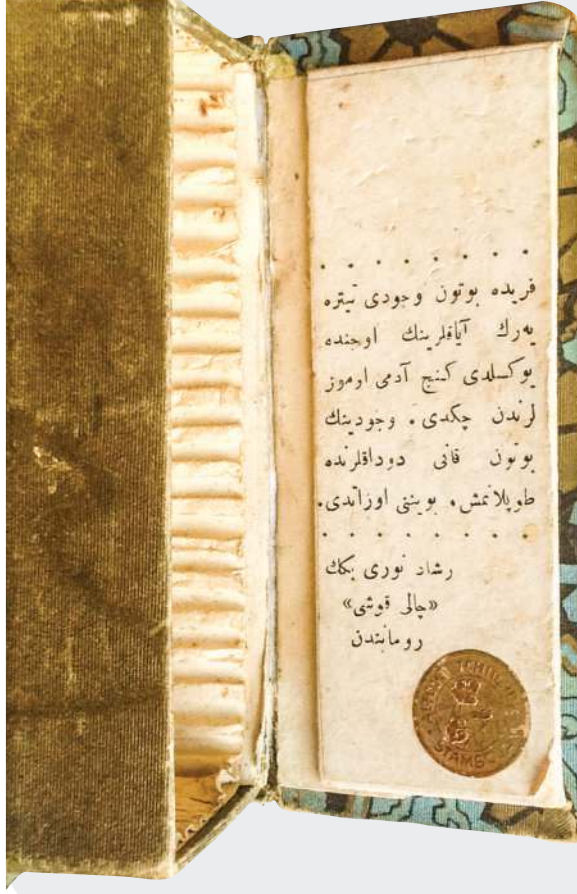 . . . . . . . .
فریده بوتون وجودی تیتره
یه‌رك آیاقلرینك اوجنده
یوكسلدی كنج آدمی اوموز
لرندن چكدی . وجودینك
بوتون قانی دوداقلرنده
طوپلانمش. بوینی اوزاتدی.
. . . . . . . .
رشاد نوری بكك
«چالی قوشی»
روماننندن
STAMB